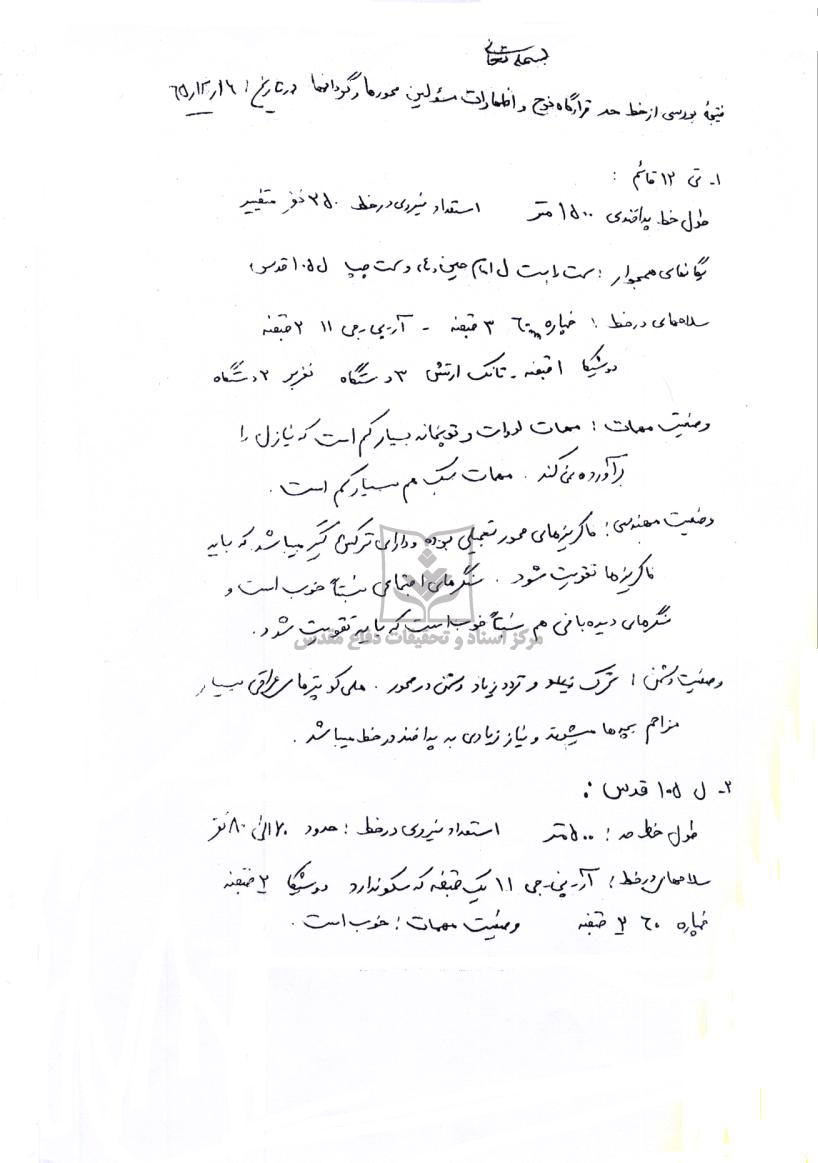 بسمه تعالی
نتیجه بررسی از خط حد قرارگاه نوح و اظهارات مسئولین محورها و گردانها در تاریخ : ۶۵/۱۲/۱۶
۱- تی ۱۲ قائم :
طول خط پدافندی ۱۵۰۰ متر استعداد نیروی در خط ۳۵۰ نفر متغییر
یگانهای همجوار : سمت راست ل امام حسین (ع) و سمت چپ ل ۱۰۵ قدس
سلاحهای در خط : خمپاره ۶۰ ۳ قبضه - آر-پی-جی ۱۱ ۲ قبضه
دوشیکا ۱ قبضه - تانک ارتش ۳ دستگاه نفربر ۲ دستگاه
وضعیت مهمات : مهمات ادوات و توپخانه بسیار کم است که نیاز ل را
برآورده نمی کند . مهمات سبک هم بسیار کم است .
وضعیت مهندسی : خاکریزهای محور تعجیلی بوده و دارای ترکش گیر میباشد که باید
خاکریزها تقویت شود . سنگرهای اجتماعی نسبتاً خوب است و
سنگرهای دیده بانی هم نسبتاً خوب است که باید تقویت شود .
مرکز اسناد و تحقیقات دفاع مقدس
وضعیت دشمن : تحرک و تردد زیاد دشمن در محور . هلی کوپترهای عراقی بسیار
مزاحم بچه ها میشوند و نیاز زیادی به پدافند در خط میباشد .
۲- ل ۱۰۵ قدس :
طول خط حد : ۵۰۰ متر استعداد نیروی در خط : حدود ۷۰ الی ۸۰ نفر
سلاحهای در خط : آر-پی-جی ۱۱ یک قبضه که سکو ندارد دوشیکا ۲ قبضه
خمپاره ۶۰ ۲ قبضه وضعیت مهمات : خوب است .